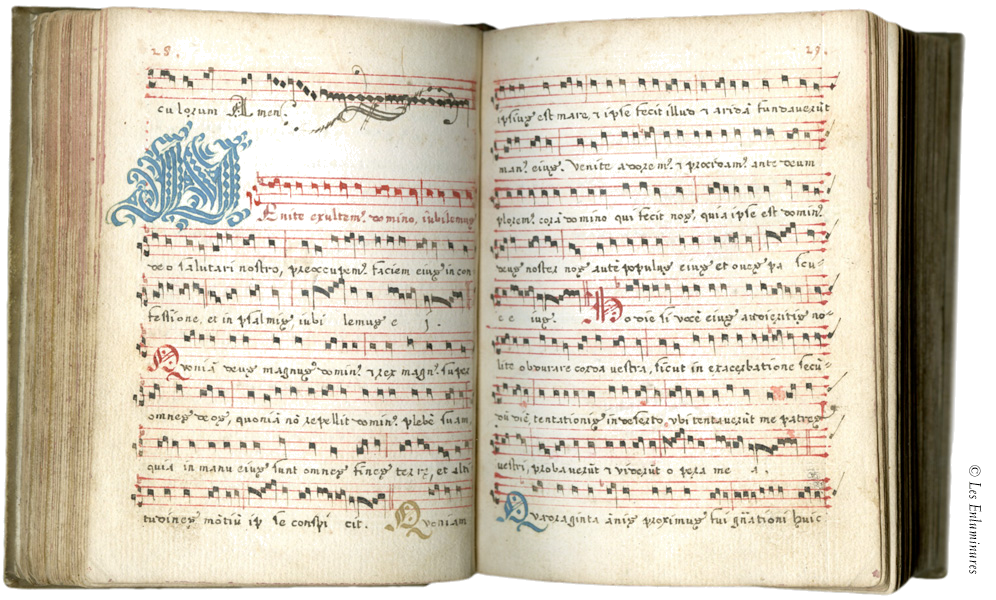 28.
culorum Amen.
Venite exultem⁹ domino, iubilemus
deo salutari nostro, preoccupem⁹ faciem eius in con
fessione, et in psalmis iubi lemus e j.
Quoniā deus magnus domin⁹ & rex magn⁹ super
omnes deos, quoniā nō repellit domin⁹ plebē suam,
quia in manu eius sunt omnes fines terre, et alti
tudines mōtiū ipse conspi cit. Quoniam
29.
ipsius est mare, & ipse fecit illud & aridā fundauerūt
man⁹ eius. Venite adorem⁹ & procidam⁹ ante deum
plorem⁹ corā domino qui fecit nos, quia ipse est domin⁹
deus noster nos autē populus eius et oues pa scu-
e e ius. Hodie si vocē eius audieritis no-
lite obdurare corda vestra, sicut in exacerbatione secū-
dū diē tentationis in deserto vbi tentauerūt me patres
vestri, probauerūt & viderūt opera me a.
Quadraginta ānis proximus fui gñationi huic
© Les Enluminures